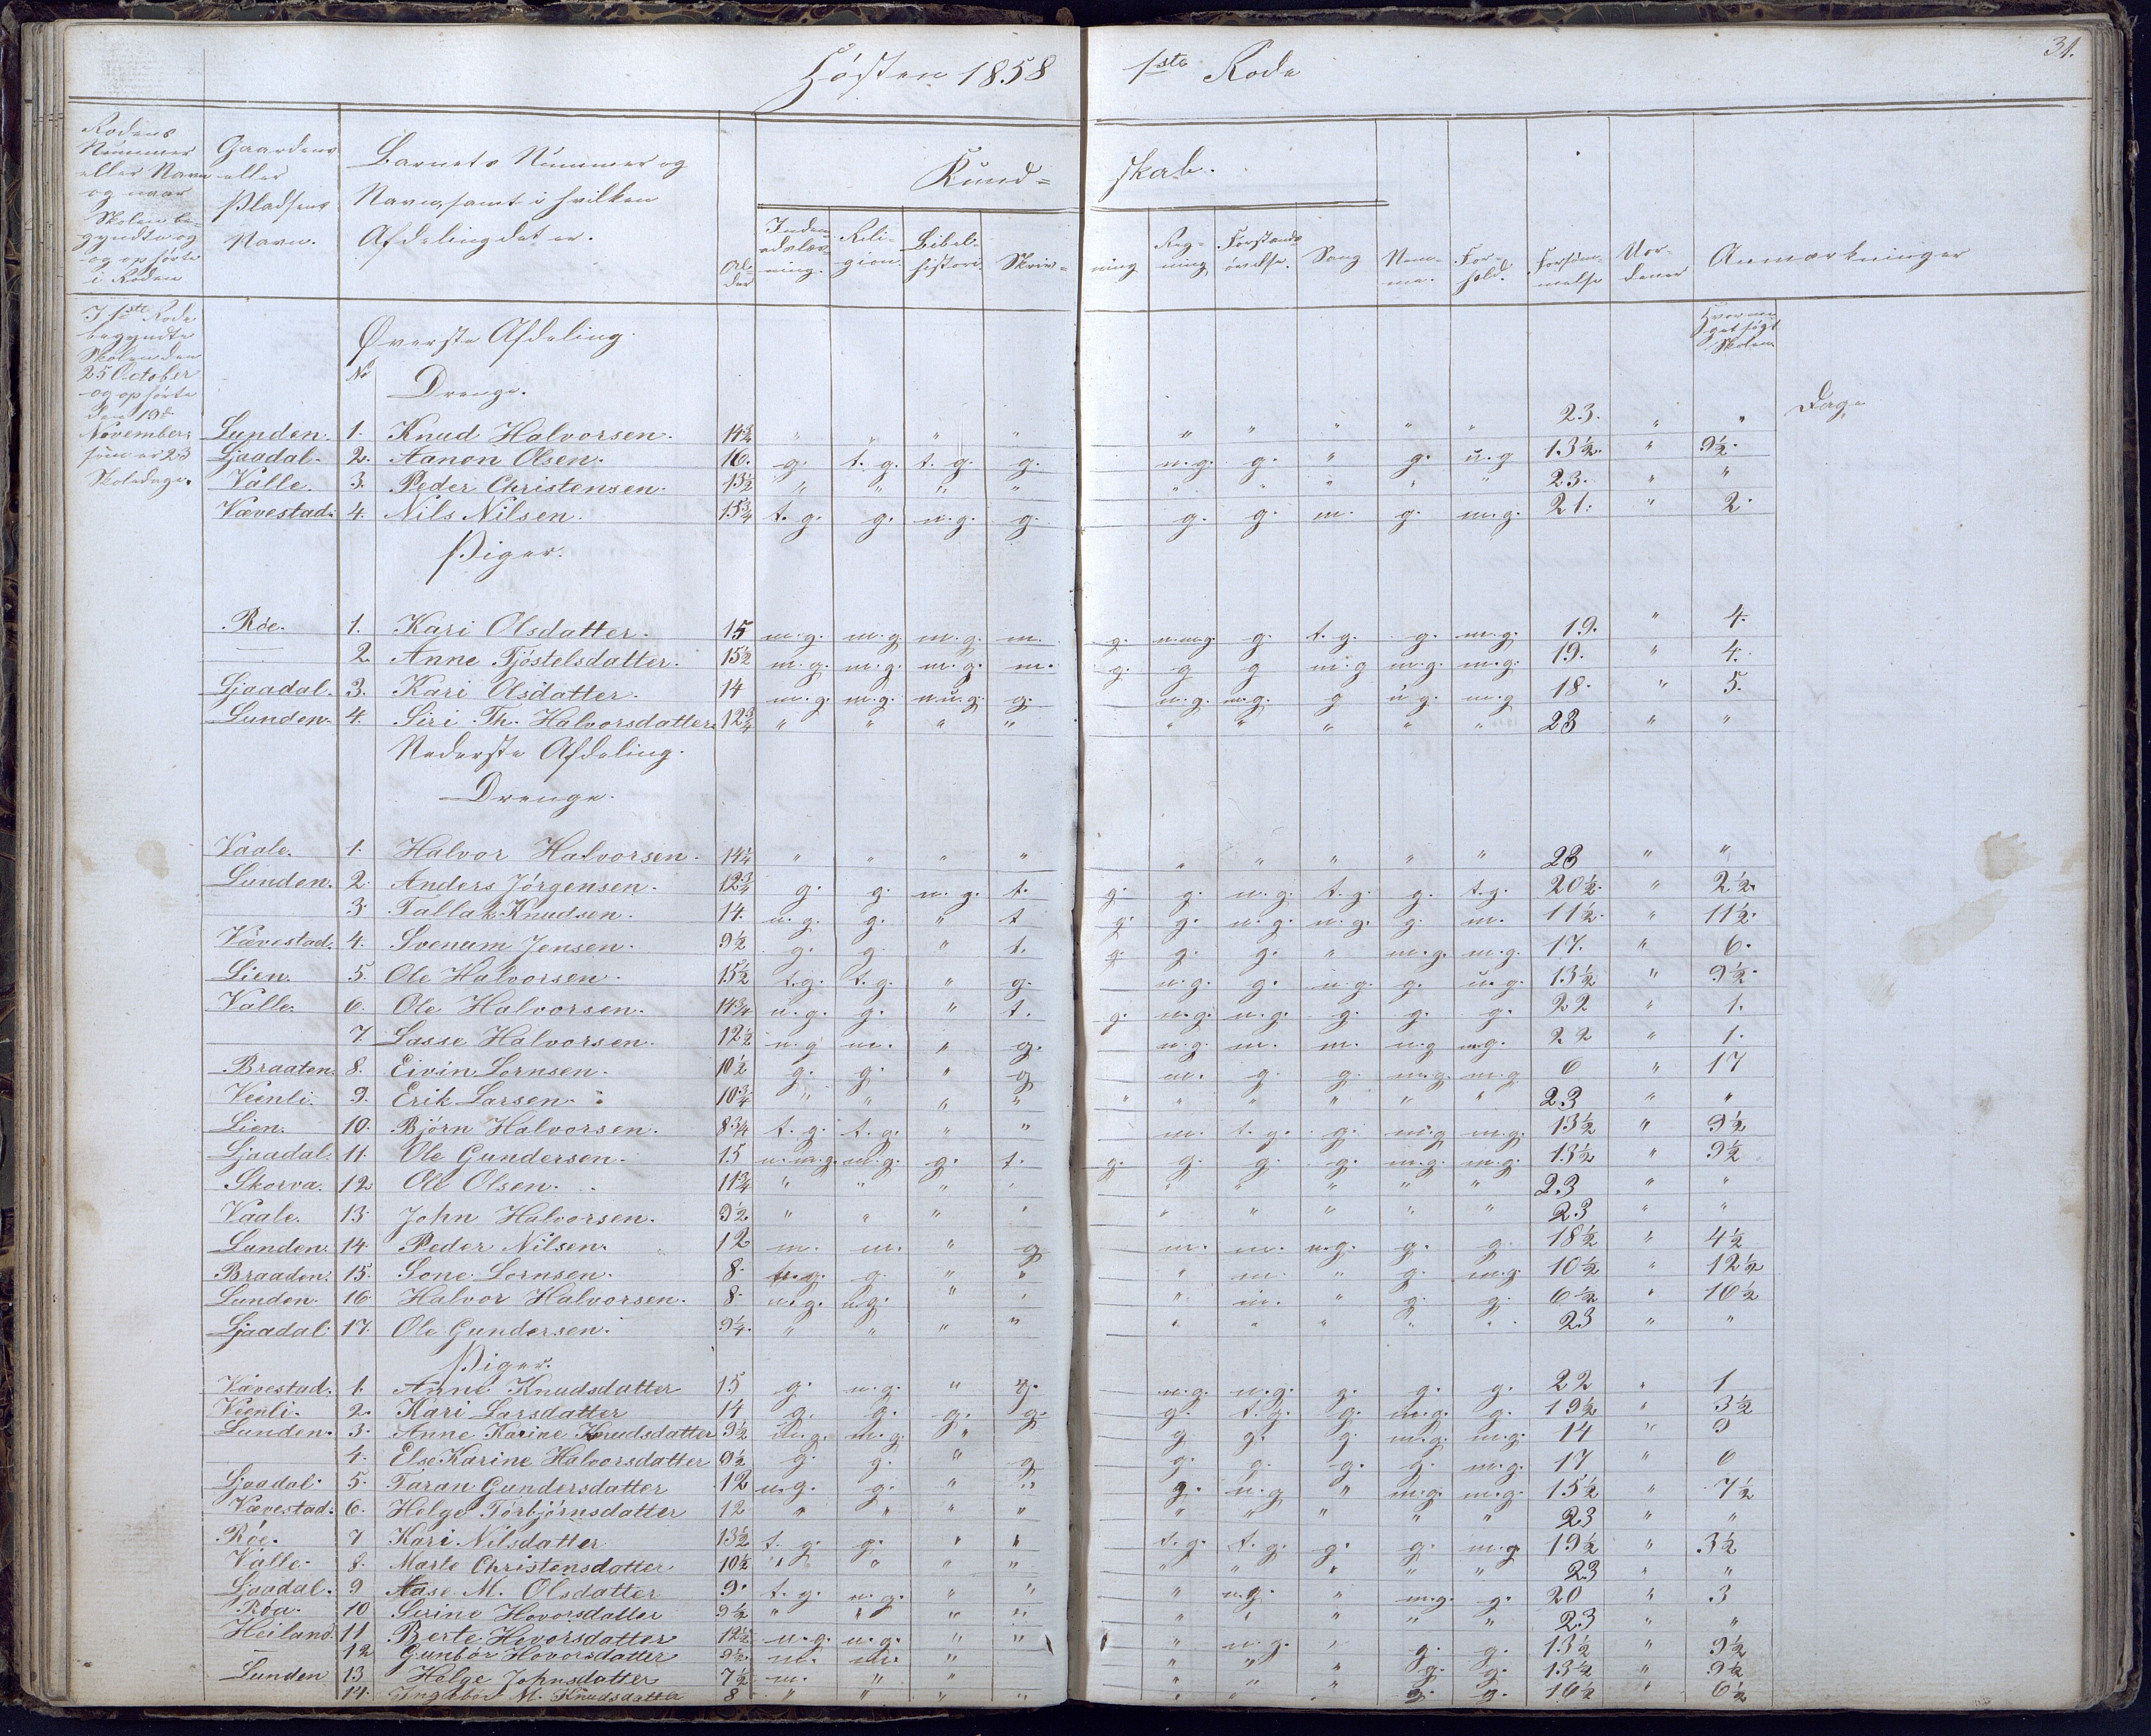 Hösten 1858 1ste Rode 31.
Rodens Nummer eller Navn og naar Skolen begyndte og og ophörte i Roden
Gaardens eller Pladsens Navn.
Barnets Nummer og Navn, samt i hvilken Afdeling det er.
Alder
Kundskab.
Indenadslæsning. Religion. Bibelhistorie. Skrivning Regning Forstandsövelse. Sang Nemme. Forhold. Forsömmelse Uordener Anmærkninger
I 1ste Rode begyndte Skolen den 25 October og ophörte den 19de November, som er 23 Skoledage.
Hvormeget sögt Skolen
Överste Afdeling.
No Drenge. Dage
Lunden. 1. Knud Halvorsen. 14¾ " " " " " " " " " 23. " "
Ljaadal. 2. Aanon Olsen. 16. g. t.g. t.g. g. m.g. g. " g. u.g 13½. " 9½.
Valle. 3. Peder Christensen. 13½ " " " " " " " " " 23. " "
Vævestad. 4. Nils Nilsen. 15¾ t.g. g. m.g. g. g. g. m. g. m.g. 21. " 2.
Piger.
Röe. 1. Kari Olsdatter. 15 m.g. m.g m.g. m. g. m.m.g. g. t.g. g. m.g. 19. " 4.
— 2. Anne Tjöstelsdatter. 15½ m.g. m.g. m.g. m. g. g g m.g m.g. m.g. 19. " 4.
Ljaadal. 3. Kari Olsdatter. 14 m.g. m.g. m.u.g. g. m.g. m.g. g u.g. m.g 18. " 5.
Lunden. 4. Siri Th. Halvorsdatter. 12¾ " " " " " " " " " 23 " "
Nederste Afdeling.
Drenge.
Vaale. 1. Halvor Halvorsen. 14¼ " " " " " " " " " 23 " "
Lunden. 2. Anders Jörgensen. 12¾ g. g. m.g. t. g. g. m.g. t.g. g. t.g. 20½. " 2½.
3. Tallak Knudsen. 14. m.g. g. " t g. g. m.g. m.g. g. m. 11½. " 11½.
Vævestad. 4. Svenum Jensen. 9½ g. g. " t. g. g. g. " m.g. m.g. 17. " 6.
Lien. 5. Ole Halvorsen. 15½ t.g. t.g. " g. m.g. g. m.g. g. u.g. 13½ " 9½.
Valle. 6. Ole Halvorsen. 14¾ m.g. g. " t. g. m.g. m.g. g. g. g. 22 " 1.
7. Lasse Halvorsen. 12½ m.g m. " g. m.g. m. m. m.g m.g. 22 " 1.
Braaten. 8. Eivin Lornsen. 10½ g. g. " g m. g. g. m.g. m.g 6 " 17
Veenli. 9. Erik Larsen. 10¾ " " " " " " " " " " 23 " "
Lien. 10. Björn Halvorsen. 8¾ t.g. t.g. " " m. t.g. g. m.g m.g. 13½ " 9½
Ljaadal. 11. Ole Gundersen. 15 m.m.g. m.g. g. t. g. g. g. g. m.g. m.g. 13½ " 9½
Skorva. 12 Ole Olsen. 11¾ " " " " " " " " " 23 " "
Vaale. 13. John Halvorsen. 9½ " " " " " " " " " 23 " "
Lunden. 14. Peder Nilsen. 12 m. m. " g m. m. m.g. g. g. 18½ " 4½
Braaden. 15. Sone Lornsen. 8. m.g. g. " " " m. " g. m.g. 10½ " 12½
Lunden. 16. Halvor Halvorsen. 8. m.g. m.g. " " " m. " g. g. 6½ " 16½
Ljaadal. 17. Ole Gundersen. 9¼. " " " " " " " " " 23 " "
Piger.
Vævestad. 1. Anne Knudsdatter 15 g. m.g. " g. m.g. m.g. g. g. g. 22 " 1
Veenli. 2. Kari Larsdatter 14 g. g. g. g. g. t.g. g. m.g. g. 19½ " 3½
Lunden. 3. Anne Karine Knudsdatter 9½ m.g. m.g. " g g g. g. m.g. m.g. 14 " 9
4. Else Karine Halvorsdatter 9½ g. g. " g g. g. g. g. m.g. 17 " 6
Ljaadal. 5. Taran Gundersdatter 12 m.g. g. " " g. m.g " m.g. m.g. 15½ " 7½
Vævestad. 6. Helge Törbjörnsdatter 12 " " " " " " " " " 23 " "
Röe. 7 Kari Nilsdatter 13½ t.g. g. " " t.g. t.g. g. g. m.g 19½ " 3½
Valle. 8. Marte Christensdatter 10½ " " " " " " " " " 23 " "
Ljaadal. 9 Aase M. Olsdatter 9. t.g. m.g. " " " m.g. " m.g. g. 20 " 3
Röa. 10 Serine Hovorsdatter 9½ " " " " " " " " " 23 " "
Heiland. 11 Berte Hovorsdatter 12½ m.g. m.g. " " " m.g. " g. g. 13½ " 9½
— 12 Gunbör Hovorsdatter 9½ m. m. " " " " g. g. 13½ " 9½
Lunden 13 Helge Johnsdatter 7½ m. " " " " " g. g. 16½ " 6½
14. Ingebor M. Knudsdatter 8 " " " "